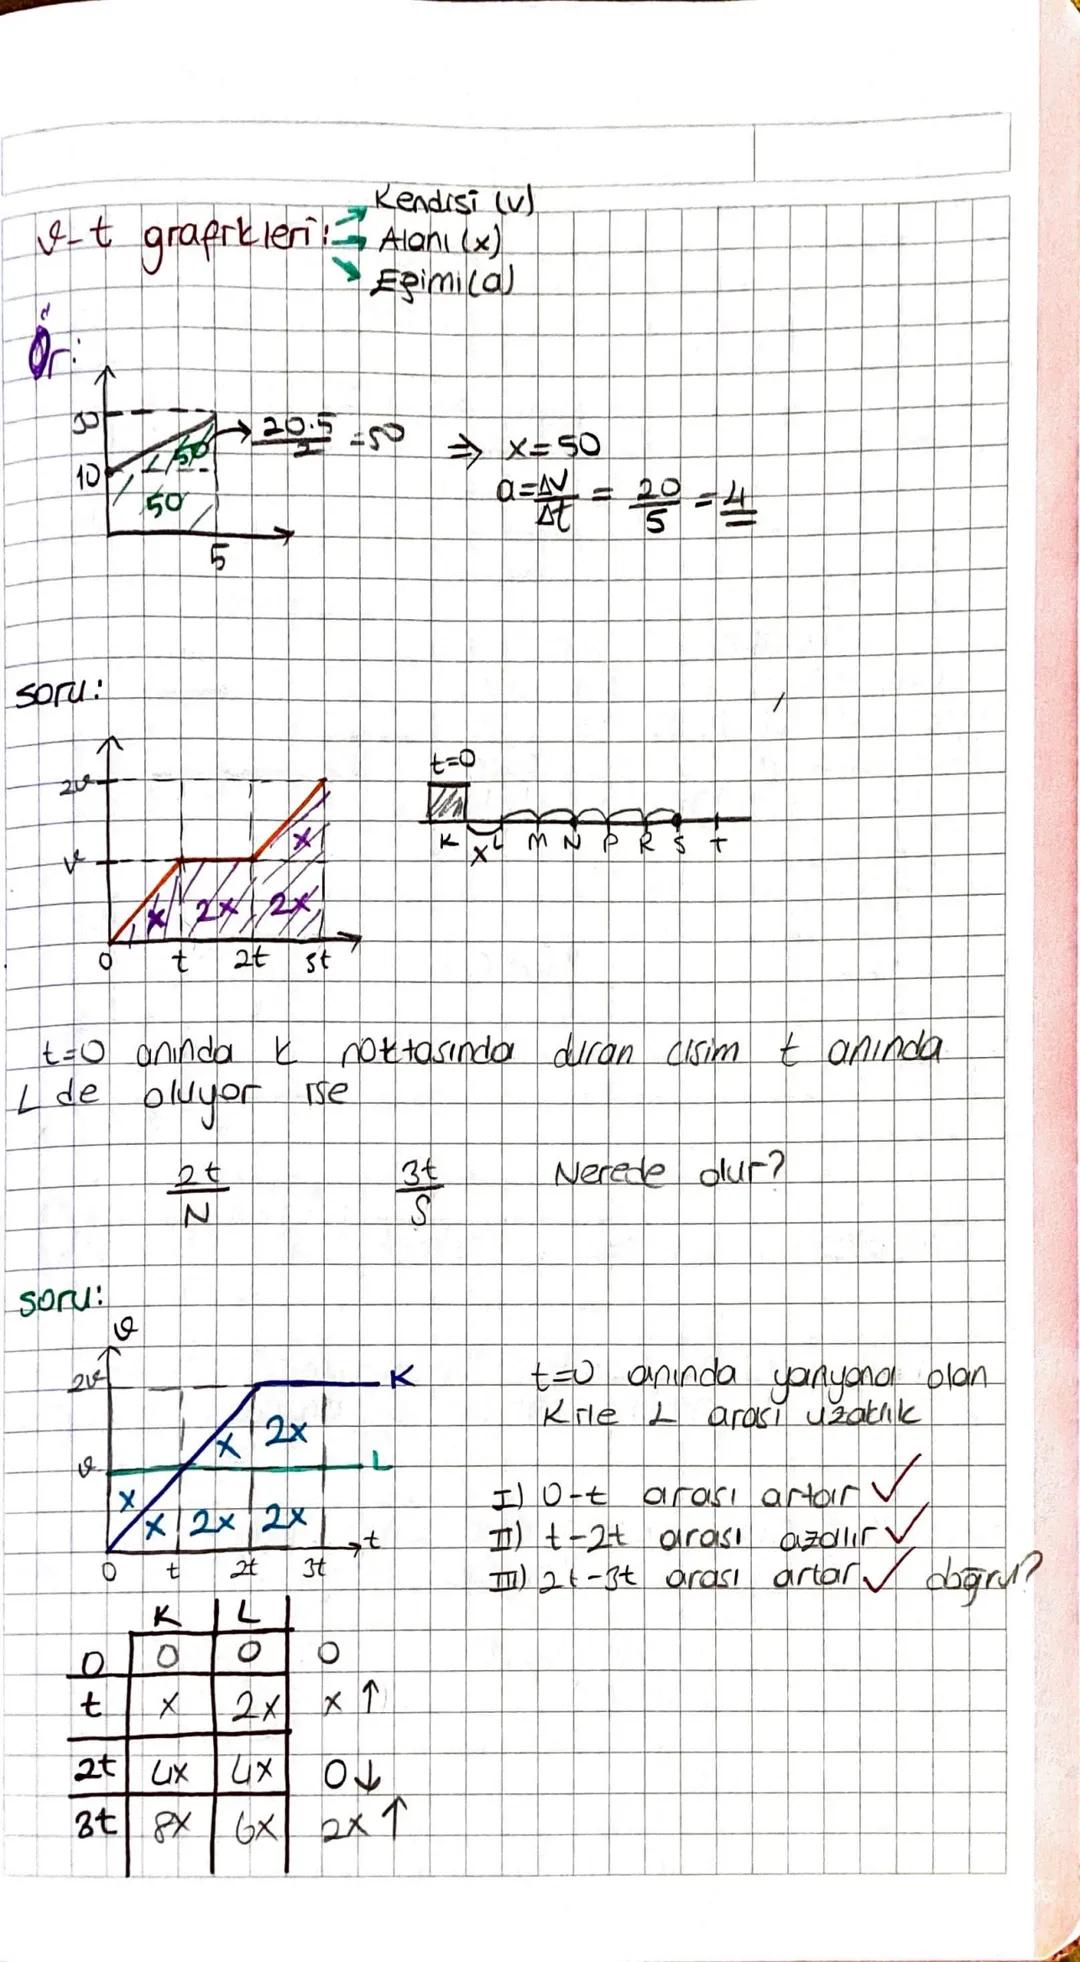 Kendisi (v)
ϑ-t grafikleri: Alanı (x)
Eğimi (a)
Ör:
30
10
50
50
5
20.5/2 = 50 ⇒ x = 50
a = ΔV/Δt = 20/5 = 4
soru:
2ϑ
ϑ
x 2x 2x x
0 t 2t 3t
t=0
K x L M N P R S T
t=0 anında K noktasında duran cisim t anında
L de oluyor ise
2t/N 3t/S Nerede olur?
soru:
ϑ
2ϑ
ϑ
K
L
x 2x
x
x 2x 2x
0 t 2t 3t t
t=0 anında yanyana olan
K ile L arası uzaklık
I) 0-t arası artar ✓
II) t-2t arası azalır ✓
III) 2t-3t arası artar ✓ doğru?
K L
0 0 0 0
t x 2x x ↑
2t 4x 4x 0 ↓
3t 8x 6x 2x ↑